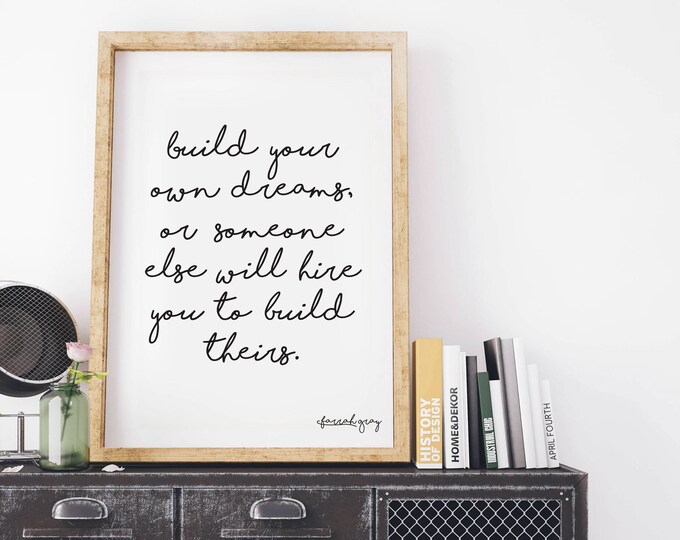 build your
own dreams,
or someone
else will hire
you to build
theirs.
farrah gray
HISTORY
OF DESIGN
HOME&DEKOR
INDUSTRIAL CHIC
APRIL FOURTH